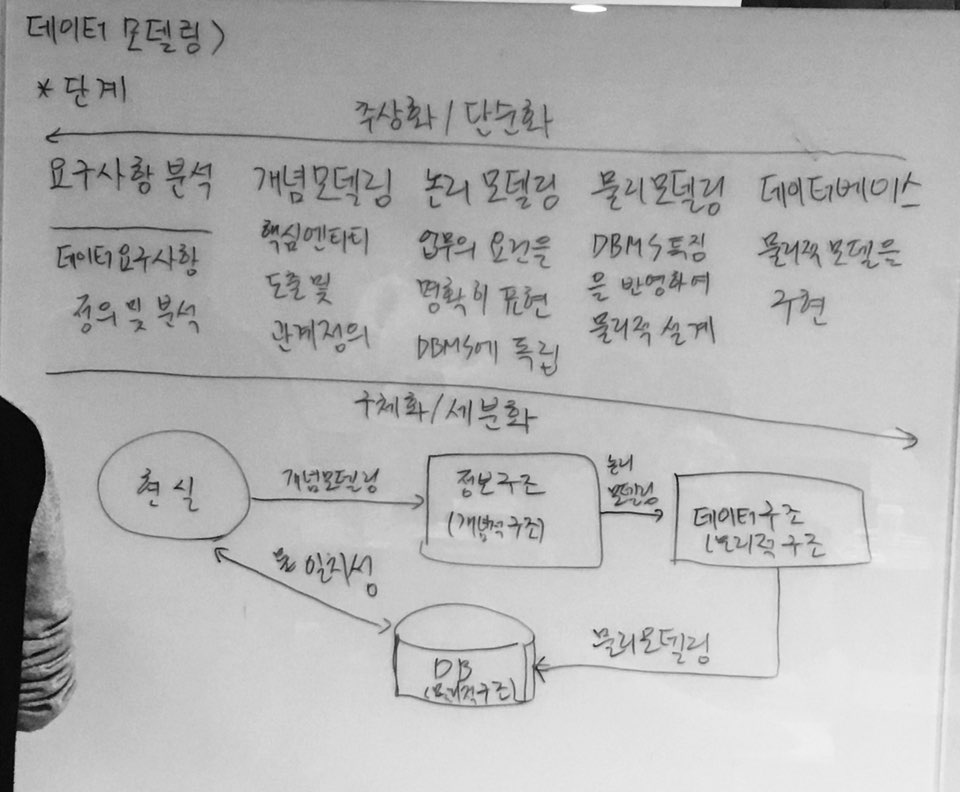 데이터 모델링)
* 단계
추상화 / 단순화
요구사항 분석 개념모델링 논리 모델링 물리모델링 데이터베이스
데이터요구사항
정의 및 분석
핵심엔티티
도출 및
관계정의
업무의 요건을
명확히 표현
DBMS에 독립
DBMS특징
을 반영하여
물리적 설계
물리적 모델을
구현
구체화/세분화
현실
개념모델링
정보구조
(개념적구조)
논리
모델링
데이터구조
(논리적구조
물리모델링
DB
(물리적구조)
일치성